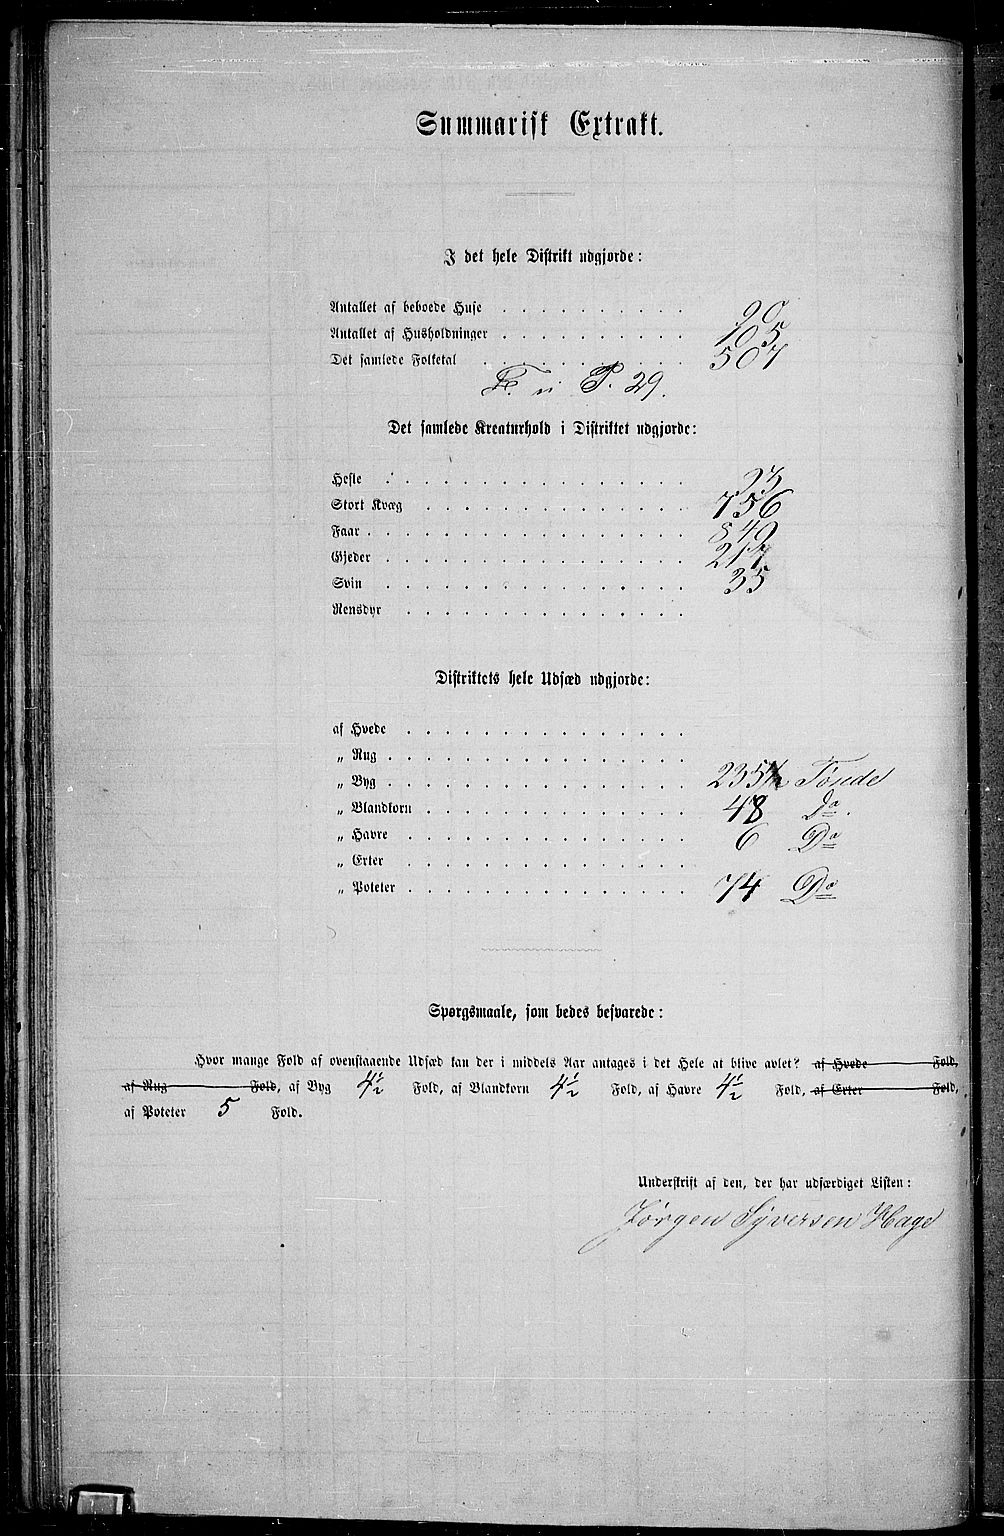 Summarisk Extrakt.
I det hele Distrikt udgjorde:
Antallet af beboede Huse . . . . . . . . . . 90
Antallet af Husholdninger . . . . . . . . . . 105
Det samlede Folketal . . . . . . . . . . 507
P. 29.
Det samlede Kreaturhold i Distriktet udgjorde:
Heste . . . . . . . . . . 23
Stort Kvæg . . . . . . . . . . 756
Faar . . . . . . . . . . 849
Gjeder . . . . . . . . . . 217
Svin . . . . . . . . . . 35
Rensdyr . . . . . . . . . .
Distriktets hele Udsæd udgjorde:
af Hvede . . . . . . . . . .
„ Rug . . . . . . . . . .
„ Byg . . . . . . . . . . 235 Tønde
„ Blandkorn . . . . . . . . . . 48 Do.
„ Havre . . . . . . . . . . 6 Do
„ Erter . . . . . . . . . .
„ Poteter . . . . . . . . . . 74 Do
Spørgsmaale, som bedes besvarede:
Hvor mange Fold af ovenstaaende Udsæd kan der i middels Aar antages i det Hele at blive avlet? af Hvede Fold,
af Rug Fold, af Byg 4½ Fold, af Blandkorn 4½ Fold, af Havre 4½ Fold, af Erter Fold,
af Poteter 5 Fold.
Underskrift af den, der har udfærdiget Listen:
Jørgen Syversen Hage